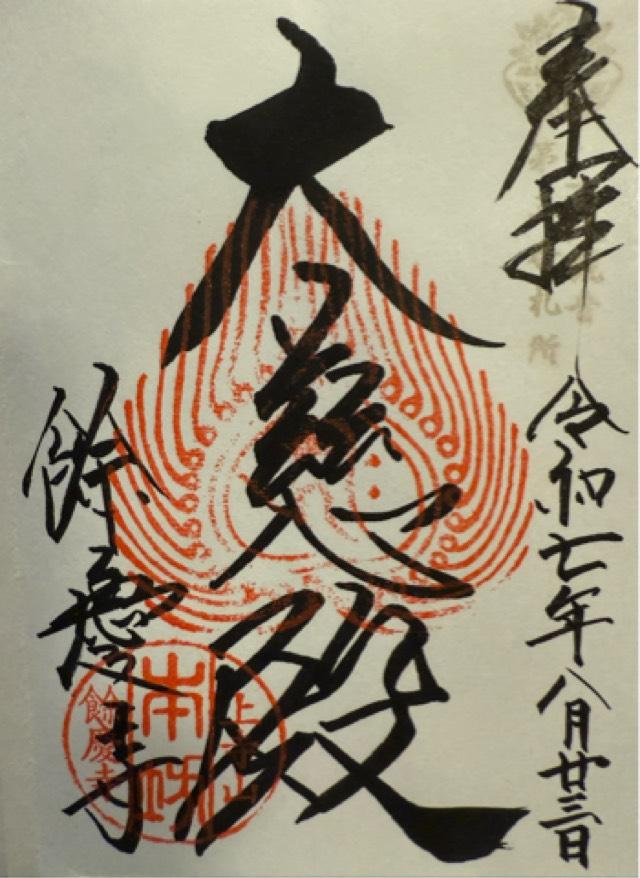 奉拝
令和七年八月廿三日
大悲殿
餘慶寺
上寺山
本坊
餘慶寺